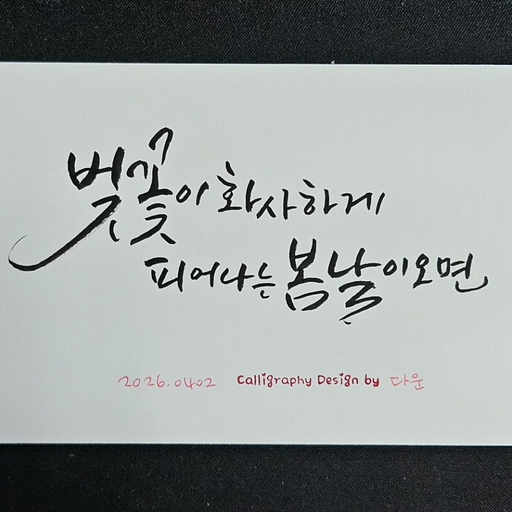 벚꽃이 화사하게
피어나는 봄날이오면
2026.0402 Calligraphy Design by 다운